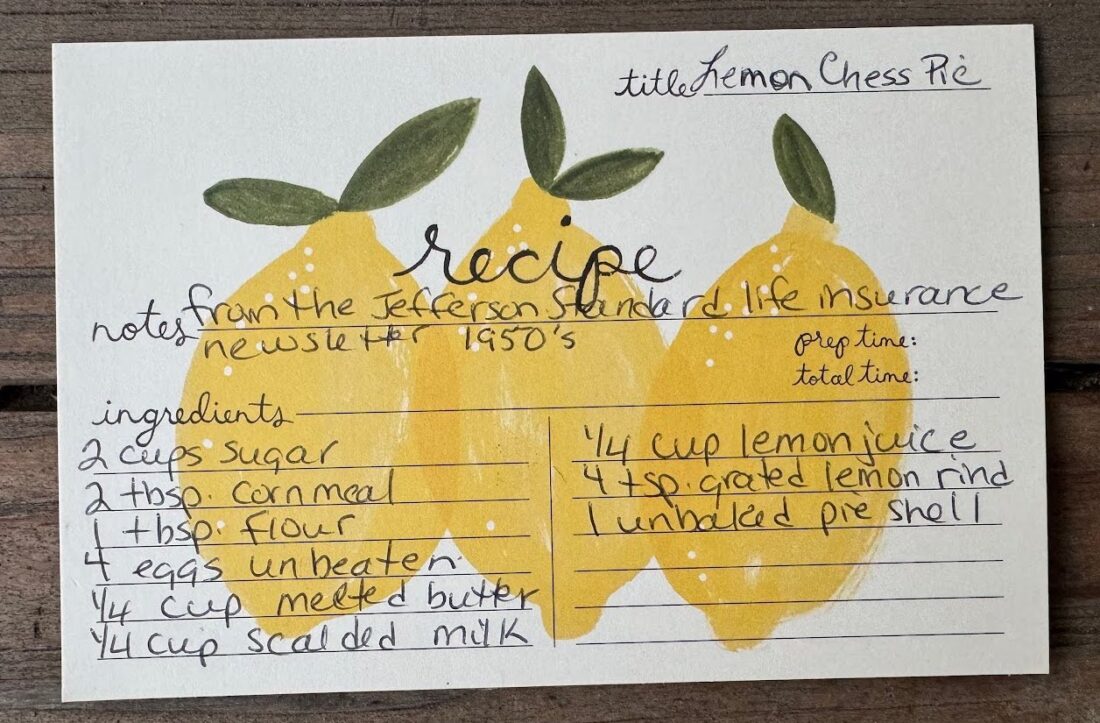 title Lemon Chess Pie
recipe
notes from the Jefferson Standard life insurance
newsletter 1950's
prep time:
total time:
ingredients
2 cups sugar
2 tbsp. cornmeal
1 tbsp. flour
4 eggs unbeaten.
1/4 cup melted butter
1/4 cup scalded milk
1/4 cup lemon juice
4 tsp. grated lemon rind
1 unbaked pie shell